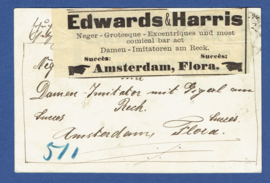 Edwards & Harris
Neger-Grotesque-Excentriques und most
comical bar act
Damen-Imitatoren am Reck.
Succès: Succès:
Amsterdam, Flora.
Damen Imitator mit
Reck.
Succes Succes
Amsterdam Flora.
511